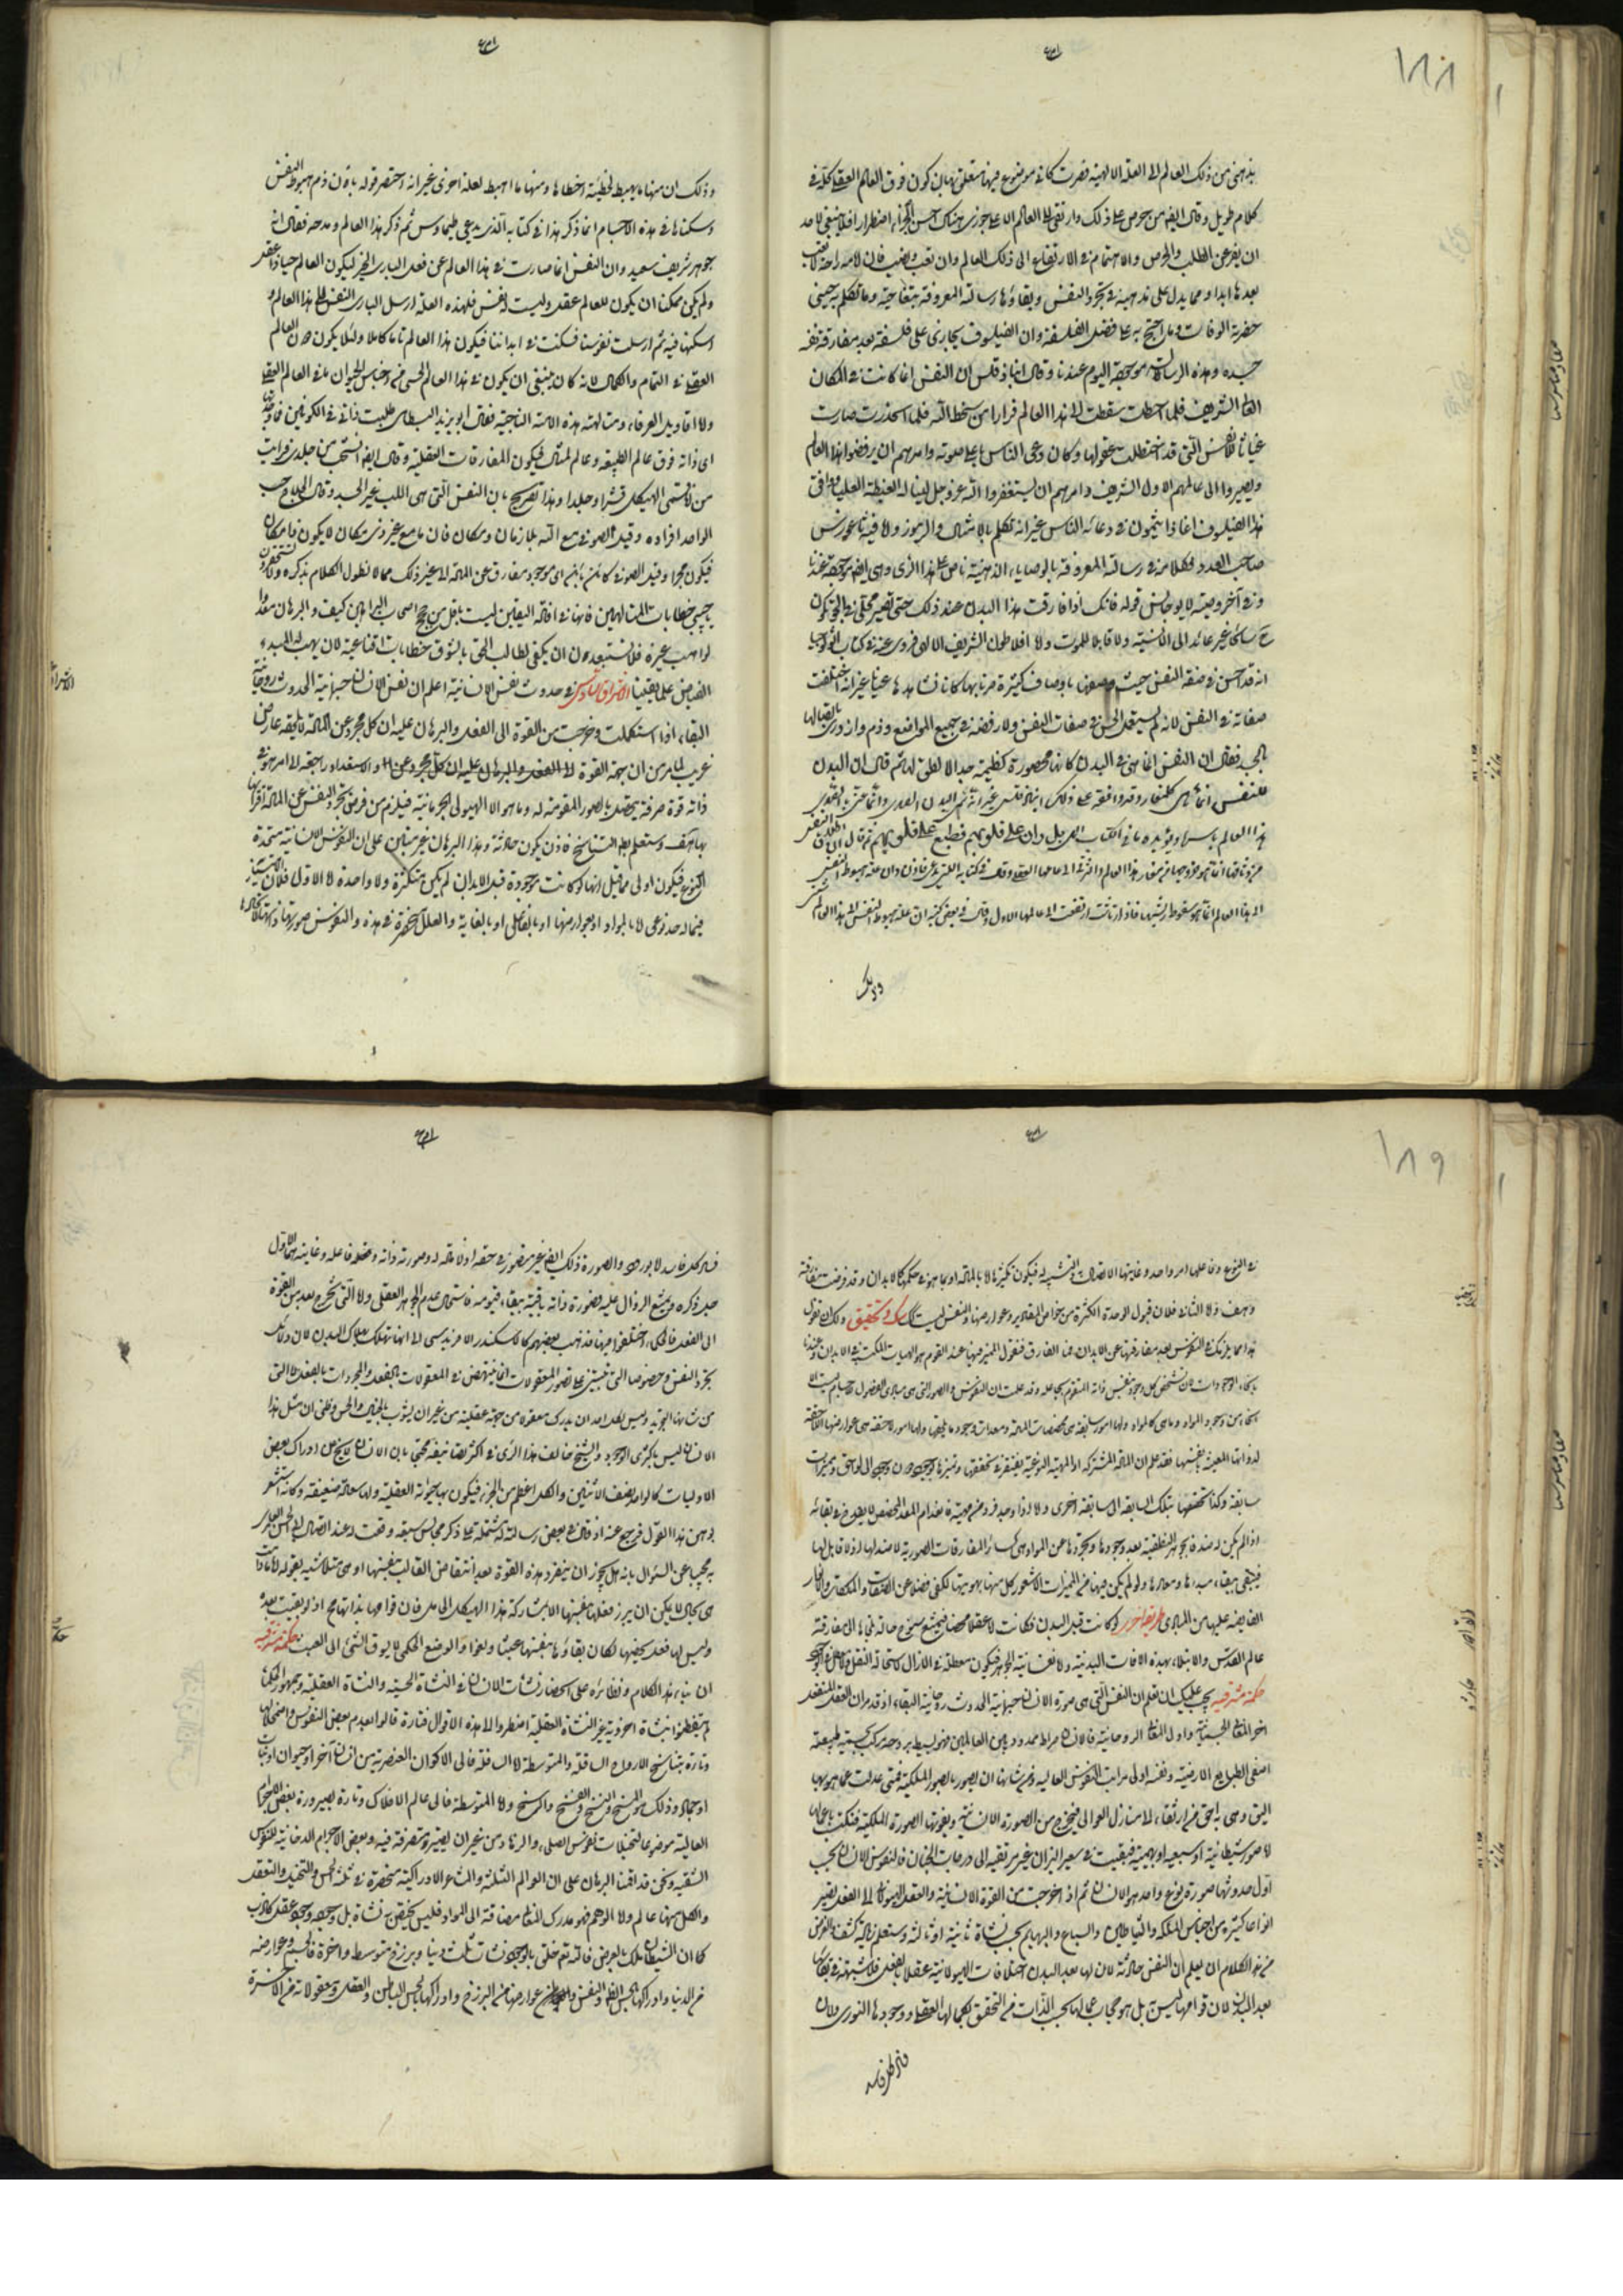 ١٨٨
بذهني من ذلك العالم الى العلة الالهية فصرت كانى موضوع فيها متعلق بها فاكون فوق العالم العقلي كله فى
كلام طويل وقال ايضا من حرص على ذلك وارتقى الى العالم الاعلى جوزى هناك احسن الجزاء اضطرارا فلا ينبغي لاحد
ان يفتر عن الطلب والحرص والاهتمام فى الارتفاع الى ذلك العالم وان تعب ونصب فان امامه راحة لا تعب
بعدها ابدا ومما يدل على مذهبه فى تجرد النفس وبقاؤها رسالته المعروفة بتفاحية وما تكلم به حين
حضرته الوفات وما احتج به على فضل الفلسفة وان الفيلسوف يجازى على فلسفته بعد مفارقة نفسه
جسده وهذه الرسالة موجودة اليوم عندنا وقال انباذقلس ان النفس انما كانت فى المكان
العالى الشريف فلما اخطات سقطت الى هذا العالم فرارا من سخط الله فلما انحدرت صارت
غياثا للانفس التى قد اختلطت عقولها وكان دعى الناس باعلى صوته وامرهم ان يرفضوا هذا العالم
ويصيروا الى عالمهم الاول الشريف وامرهم ان يستغفروا الله عز وجل لينالوا الغبطة العليا ووافق
هذا الفيلسوف اغاثاذيمون فى دعائه الناس غير انه تكلم بالامثال والرموز واما فيثاغورس
صاحب العدد فكلامه فى رسالته المعروفة بالوصايا الذهبية ناص على هذا الرأى وهى ايضا موجودة عندنا
وفى آخر وصيته لديوجانس قوله فانك اذا فارقت هذا البدن عند ذلك حتى تصير مخلى فى الجو تكون
ح سائحا غير عائد الى الانسية ولا قابلا للموت واما افلاطون الشريف الالهى فروى عنه فى كتاب اثولوجيا
انه قد احسن فى صفة النفس حيث وصفها باوصاف كثيرة صرنا بها كانا نشاهدها عيانا غير انه اختلفت
صفاته فى النفس لانه لم يستعمل الحس فى صفات النفس ولا رفضه فى جميع المواضع وذم وازدرى اتصالها
بالجسد فقال ان النفس انما هى فى البدن كانها محصورة كظيمة جدا لا نطق لها ثم قال ان البدن
للنفس انما هى كالمغار وقد وافقه على ذلك انباذقلس غير انه سمى البدن الصدى وانما عنى بالصدى
هذا العالم باسره ويؤيده ما فى الكتاب الهى بل ران على قلوبهم فطبع على قلوبهم ثم قال ان اطلاق النفس
من وثاقها انما هو خروجها من مغار هذا العالم والترقى الى عالمها العقلى وقال فى كتابه الذى يدعى فاذن وان علة هبوط النفس
الى هذا العالم انما هو سقوط ريشها فاذا ارتاشت ارتفعت الى عالمها الاول وقال فى بعض كتبه ان علة هبوط النفس الى هذا العالم شتى
وذلك
وذلك ان منها ما يهبط لخطيئة اخطاها ومنها ما اهبط لعلة اخرى غير انه اختصر قوله بان ذم هبوط النفس
وسكناها فى هذه الاجسام انما ذكر هذا فى كتابه الذى يدعى طيماوس ثم ذكر هذا العالم ومدحه فقال انه
جوهر شريف سعيد وان النفس انما صارت فى هذا العالم عن فعل البارى الخير ليكون العالم حيا ذا عقل
ولم يكن ممكنا ان يكون للعالم عقل وليست له نفس فلهذه العلة ارسل البارى النفس الى هذا العالم و
اسكنها فيه ثم ارسلت نفوسنا فسكنت فى ابداننا فيكون هذا العالم تاما كاملا ولئلا يكون دون العالم
العقلى فى التمام والكمال لانه كان ينبغى ان يكون فى هذا العالم الحسى من اجناس الحيوان ما فى العالم العقلى
واما اقاويل العرفاء ومتالهة هذه الامة الناجية فقال ابو يزيد البسطامى طلبت ذاتى فى الكونين فما وجدتها
اى ذاته فوق عالم الطبيعة وعالم المثال فيكون المفارقات العقلية وقال ايضا انسلخت من جلدى فرايت
من انا سمى الهيكل قشرا وجلدا وهذا تصريح بان النفس التى هى اللب غير الجسد وقال الحلاج حسب
الواحد افراده وقيل الصوفى مع الله بلا زمان ومكان فان ما مع غير ذى مكان لا يكون ذا مكان
فيكون مجردا وقيل الصوفى كائن بائن اى موجود مفارق عن المادة الى غير ذلك مما لا نطول الكلام بذكره ولا تستحقرن
يا حبيبى خطابات المتالهين فانها فى افادة اليقين ليست باقل من حجج اصحاب البراهين كيف والبرهان معدا
لواهب غيره فلا تستبعدن ان يكفى لطالب الحق بالشوق خطابات اقناعية لان يهب له المبدء
الفياض علما يقينيا الاشراق السادس فى حدوث نفس الانسانية اعلم ان نفس الانسان جسمانية الحدوث روحانية
البقاء اذا استكملت وخرجت من القوة الى الفعل والبرهان عليه ان كل مجرد عن المادة لا يلحقه عارض
غريب لما مر من ان جهة القوة والاستعداد راجعة الى امر هو فى
ذاته قوة صرفة يتحصل بالصور المقومة له وما هو الا الهيولى الجرمانية فيلزم من فرض تجرد النفس عن المادة اقترانها
بها هف وستعلم بطلان التناسخ فاذن يكون حادثة وهذا البرهان غير مبتن على ان النفوس الانسانية متحدة
النوع فيكون اولى مما قيل انها لو كانت موجودة قبل الابدان لم يكن متكثرة ولا واحدة اما الاول فلان الامتياز
فيما له حد نوعى اما بالمواد او بعوارضها او بالفاعل او بالغاية والعلل منحصرة فى هذه والنفوس صورتها ذاتها
١٨٩
فى النوع وفاعلها امر واحد وغايتها الاتصال والتشبه به فيكون تكثرها اما بالمادة او بما هو فى حكمها كالابدان وقد فرضت مفارقة
وهف واما الثانى فلان قبول الوحدة الكثرة من خواص المقادير وعوارضها والنفس ليست كذلك شك وتحقيق ولك ان تقول
هذا مما يلزمك فى النفوس بعد مفارقتها عن الابدان فما الفارق فنقول المميز فيها عند القوم هو الهيات المكتسبة فى الابدان وعندنا
بانحاء الوجودات لان تشخص كل وجود بنفس ذاته المتقوم بجاعله وقد علمت ان النفوس والصور التى هى مبادى الفصول للاجسام ليست الا
انحاء من وجود المواد وما هى كالمواد ولها امور سابقة هى مخصصات المادة ومعدات وجودها ما يلحقها ولها امور لاحقة هى عوارضها اللاحقة
لذواتها المعينة بنفسها فقد علم ان المادة المشتركة او المهية النوعية يفتقر فى تحققها وتميزها بوجود دون وجود الى لواحق ومميزات
سابقة وكذا تخصصها بتلك السابقة الى سابقة اخرى واما اذا وجد فرد من مهية فانعدام المعد المخصص لا يقدح فى بقائه
اذا لم يكن له ضد فالجوهر النطقية بعد وجودها وتجردها عن المواد هى كسائر المفارقات الصورية لا ضد لها اذ لا قابل لها
فيبقى ببقاء مبدئها ومعادها ولو لم يكن فيها من المميزات الا شعور كل منها بهويتها لكفى فضلا عن الصفات والملكات والانوار
الفايضة عليها من المبادى طريق اخر لو كانت قبل البدن فكانت اما عقلا محضا فيمتنع سنوح حالة يلجئها الى مفارقة
عالم القدس والابتلاء بهذه الافات البدنية واما نفسانية الجوهر فيكون معطلة فى الازال لاستحالة النقل ولا معطل فى الوجود
حكمة مشرقية يجب عليك ان تعلم ان النفس التى هى صورة الانسان جسمانية الحدوث روحانية البقاء اذ قد مر ان العقل المنفعل
اخر المعانى الجسمانية واول المعانى الروحانية فالانسان صراط ممدود بين العالمين فهو بسيط بروحه مركب بجسمه طبيعته
اصفى الطبايع الارضية ونفسه اولى مراتب النفوس العالية ومن شانها ان يتصور بالصور الملكية فمتى عدلت عما هو بها
اليق وهى به احق من ارتقاء الى منازل العوالى فيخرج من الصورة الانسانية ويفوتها الصورة الملكية فتكتسب باعمالها
اما صور شيطانية او سبعية او بهيمية فبقيت فى سعير النيران غير مرتقية الى درجات الجنان فالنفوس الانسان بحسب
اول حدوثها صورة نوع واحد هو الانسان ثم اذا خرجت من القوة الانسانية والعقل الهيولانى الى الفعل يصير
انواعا كثيرة من اجناس الملائكة والشياطين والسباع والبهايم بحسب نشاة ثانية او ثالثة وستعلم زيادة كشف والغرض
من هذا الكلام ان يعلم ان النفس حادثة لان لها بعد البدن
بعد البدن لان قوامها ليس به بل هو حجاب عما لها بحسب الذات من التحقق بكمالها العقلى ووجودها النورى ولان
كل فاسد
كل فاسد لا بورود والصورة ذلك ايضا غير متصور فى حقه اذ لا مادة له وصورته ذاته ومحصله فاعله وغايته هما الاول
جل ذكره ويمتنع الزوال عليه فصورة ذاته باقية ببقاء قيومه فاستحال عدم الجوهر العقلى واما التى لم تخرج بعد من القوة
الى الفعل فالحكماء اختلفوا فيها فذهب بعضهم كالاسكندر الافريدوسى الى انها تهلك بهلاك البدن لان دلائل
تجرد النفس وخصوصا التى تبتنى على تصور المعقولات انما ينهض فى المعقولات بالفعل والمجردات بالفعل لا التى
من شانها التجريد وليس لكل احد ان يدرك معقولا من جهة عقلية من غير ان يشوب بالخيال والحس وظنى ان مثل هذا
الانسان ليس باكثرى الوجود والشيخ خالف هذا الراى فى اكثر تصانيفه محتجا بان الانسان لا يخ عن ادراك بعض
الاوليات كالواحد نصف الاثنين والكل اعظم من الجزء فيكون بها حيوته العقلية ولها سعادة ضعيفة وكانه استشعر
بوهن هذا القول فرجع عنه
مجيبا عن السؤال بانه هل يجوز ان ينفرد هذه القوة بعد انتقاض القالب بنفسها او هى متلاشية بقوله
هى بحال لا يمكن ان يبرز فعلها بنفسها الا بمشاركة هذا الهيكل الحامل فان قوامها بذاتها مح اذ لو بقيت بعده
وليس لها فعل يخصها لكان بقاؤها بنفسها عبثا ولغوا والوضع الحكمى لا يسوق الشئ الى العبث حكمة مشرقية
ان بناء هذا الكلام ونظائره على انحصار نشأت الانسان فى النشأة الحسية والنشاة العقلية وجمهور الحكماء
لم يتفطنوا بنشاة اخرى غير النشاة العقلية اضطروا الى هذه الاقوال فتارة قالوا بعدم بعض النفوس واضمحلالها
وتارة بتناسخ الارواح اما السافلة والمتوسطة اما السافلة فالى الاكوان العنصرية من انسان آخر او حيوان او نبات
او جماد وذلك هو النسخ والمسخ والفسخ والرسخ واما المتوسطة فالى عالم الافلاك وتارة بصيرورة بعض الاجرام
العالية موضوعا لتخيلات نفوس الصلحاء والزهاد من غير ان يصير متصرفة فيه وبعض الاجرام الدخانية للنفوس
الشقية ونحن قد اقمنا البرهان على ان العوالم الثلثة والمشاعر الادراكية منحصرة فى ثلثة الحس والتخيل والتعقل
والكل منها عالم واما الوهم فهو مدرك للمعانى مضافة الى المواد فليس يحقق نشاة بل وجوده وجود عقل كاذب
كما ان الشيطان ملك بالعرض فالله تع خلق بالوجود نشأت ثلث دنيا وبرزخ متوسط واخرة فالجسم وعوارضه
من الدنيا وادراكها بالحس الظاهر والنفس وعوارضها من البرزخ وادراكها بالحس الباطن والعقل ومعقولاته من الاخرة